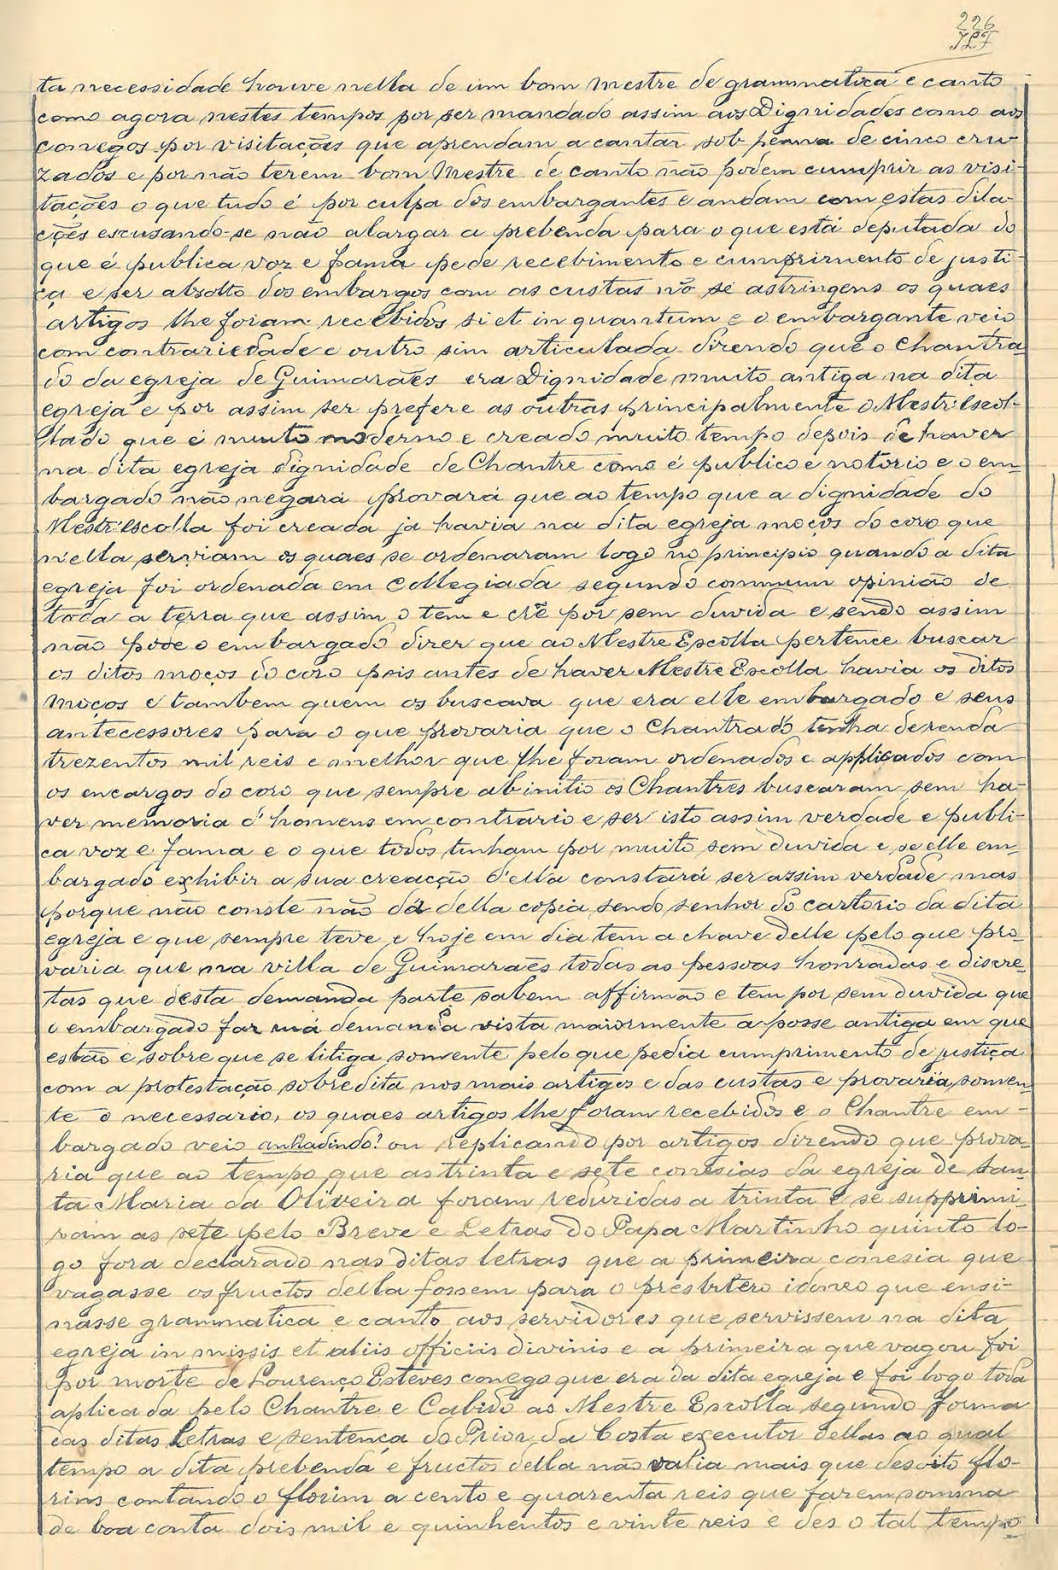 226
JLF
ta necessidade houve nella de um bom mestre de grammatica e canto
como agora nestes tempos por ser mandado assim aos Dignidades como aos
conegos por visitações que aprendam a cantar sob penna de cinco cru-
zados e por não terem bom Mestre de canto não podem cumprir as visi-
tações o que tudo é por culpa dos embargantes e andam com estas dila-
ções escusando-se não alargar a prebenda para o que está deputada do
que é publica voz e fama pede recebimento e cumprimento de justi-
ça e ser absolto dos embargos com as custas nõ se astringens os quaes
artigos lhe foram recebidos si et in quantum e o embargante veio
com contrariedade e outro sim articulada dizendo que o Chantra
do da egreja de Guimarães era Dignidade muito antiga na dita
egreja e por assim ser prefere as outras principalmente o Mestr'Escol-
lado que é muito moderno e creado muito tempo depois de haver
na dita egreja dignidade de Chantre como é publico e notorio e o em-
bargado não negará provará que ao tempo que a dignidade do
Mestr'Escolla foi creada ja havia na dita egreja moços do coro que
n'ella serviam os quaes se ordenaram logo no principio quando a dita
egreja foi ordenada em Collegiada segundo commum opinião de
toda a terra que assim o tem e crê por sem duvida e sendo assim
não pode o embargado dizer que ao Mestre Escolla pertence buscar
os ditos moços do coro pois antes de haver Mestre Escolla havia os ditos
moços e tambem quem os buscava que era elle embargado e seus
antecessores para o que provaria que o Chantrado tenha de renda
trezentos mil reis e melhor que lhe foram ordenados e applicados com
os encargos do coro que sempre ab initio os Chantres buscaram sem ha-
ver memoria d'homens em contrario e ser isto assim verdade e publi-
ca voz e fama e o que todos tinham por muito sem duvida e se elle em-
bargado exhibir a sua creacção d'ella constará ser assim verdade mas
porque não conste não dá della copia sendo senhor do cartorio da dita
egreja e que sempre teve e hoje em dia tem a chave delle pelo que pro-
varia que na villa de Guimarães todas as pessoas honradas e discre-
tas que desta demanda parte sabem affirmão e tem por sem duvida que
o embargado faz má demanda vista maiormente a posse antiga em que
estão e sobre que se litiga somente pelo que pedia cumprimento de justiça
com a protestação sobredita nos mais artigos e das custas e provaria somen-
te o necessario, os quaes artigos lhe foram recebidos e o Chantre em-
bargado veio anhadindo? ou replicando por artigos dizendo que prova-
ria que ao tempo que as trinta e sete conesias da egreja de San-
ta Maria da Oliveira foram reduzidas a trinta e se supprimi-
ram as sete pelo Breve e Letras do Papa Martinho quinto lo-
go fora declarado nas ditas letras que a primeira conesia que
vagasse os fructos della fossem para o presbitero idoneo que ensi-
nasse grammatica e canto aos servidores que servissem na dita
egreja in missis et aliis officiis divinis e a primeira que vagou foi
por morte de Lourenço Esteves conego que era da dita egreja e foi logo toda
aplicada pelo Chantre e Cabido ao Mestre Escolla segundo forma
das ditas Letras e sentença do Prior da Costa executor dellas ao qual
tempo a dita prebenda e fructos della não valia mais que desoito flo-
rins contando o florim a cento e quarenta reis que fazem somma
de boa conta dois mil e quinhentos e vinte reis e des o tal tempo